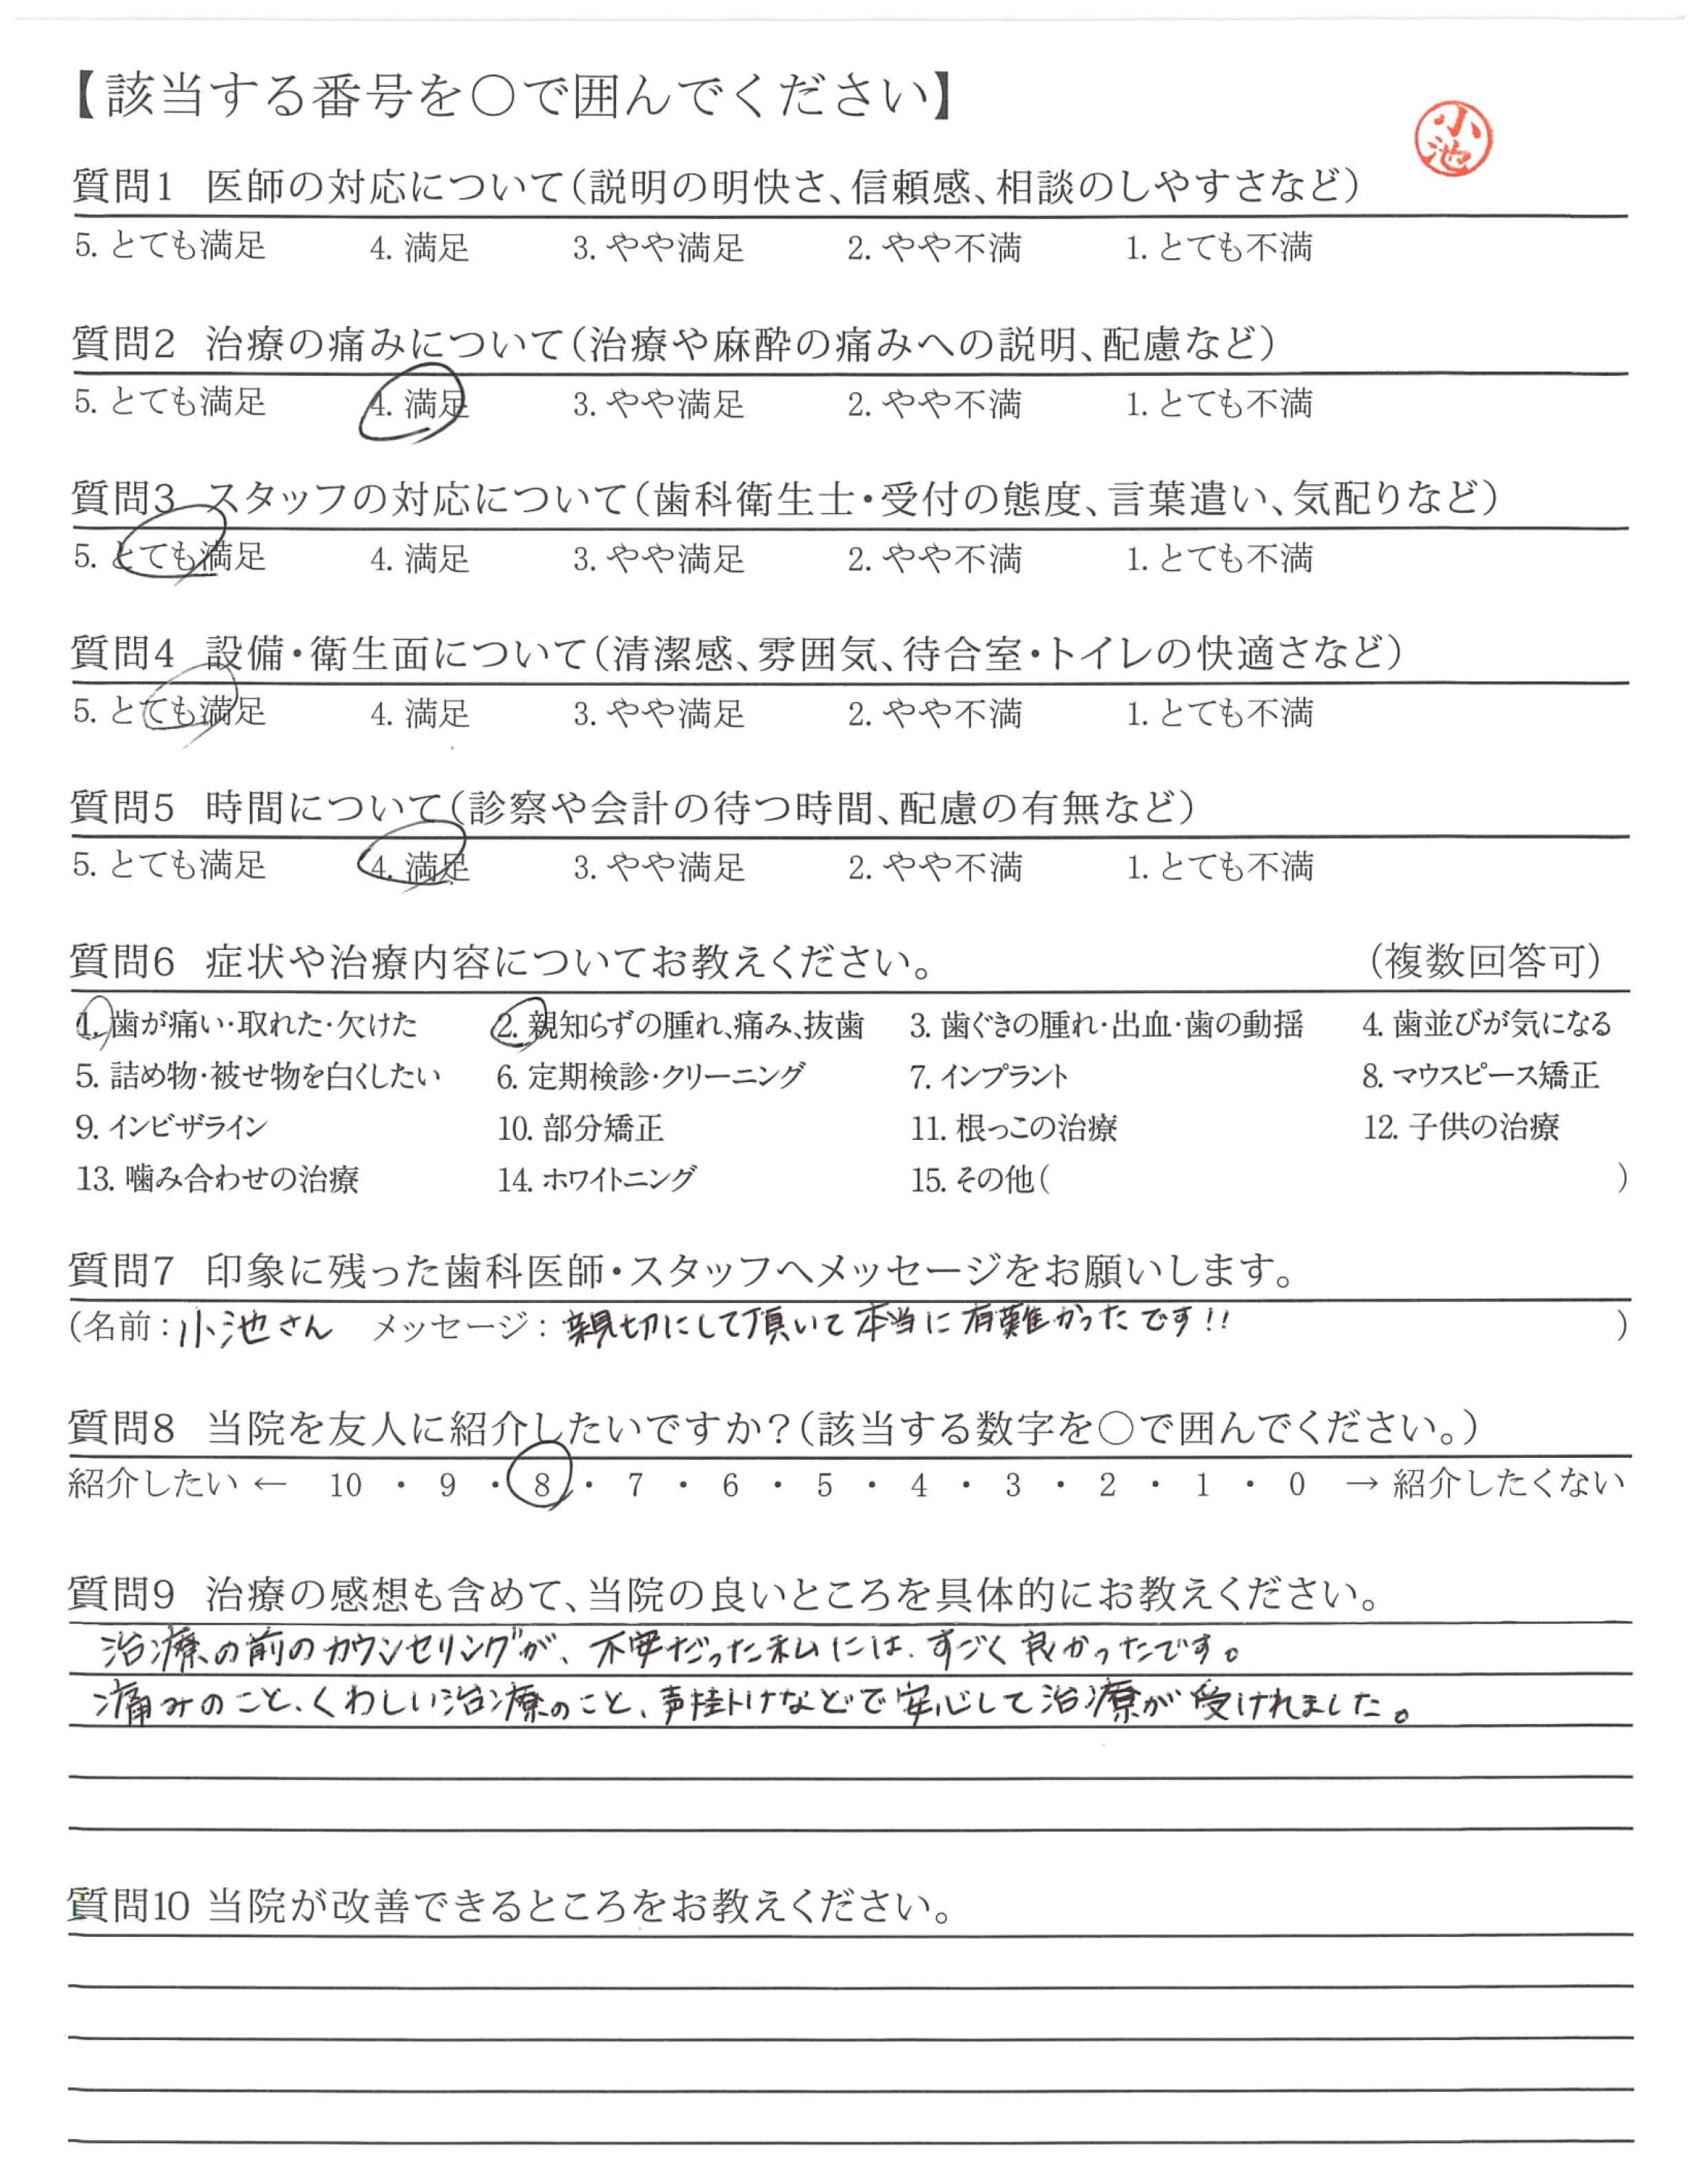 【該当する番号を○で囲んでください】
小池
質問1 医師の対応について(説明の明快さ、信頼感、相談のしやすさなど)
5. とても満足 4. 満足 3. やや満足 2. やや不満 1. とても不満
質問2 治療の痛みについて(治療や麻酔の痛みへの説明、配慮など)
5. とても満足 4. 満足 3. やや満足 2. やや不満 1. とても不満
質問3 スタッフの対応について(歯科衛生士・受付の態度、言葉遣い、気配りなど)
5. とても満足 4. 満足 3. やや満足 2. やや不満 1. とても不満
質問4 設備・衛生面について(清潔感、雰囲気、待合室・トイレの快適さなど)
5. とても満足 4. 満足 3. やや満足 2. やや不満 1. とても不満
質問5 時間について(診察や会計の待つ時間、配慮の有無など)
5. とても満足 4. 満足 3. やや満足 2. やや不満 1. とても不満
質問6 症状や治療内容についてお教えください。 (複数回答可)
1. 歯が痛い・取れた・欠けた 2. 親知らずの腫れ、痛み、抜歯 3. 歯ぐきの腫れ・出血・歯の動揺 4. 歯並びが気になる
5. 詰め物・被せ物を白くしたい 6. 定期検診・クリーニング 7. インプラント 8. マウスピース矯正
9. インビザライン 10. 部分矯正 11. 根っこの治療 12. 子供の治療
13. 噛み合わせの治療 14. ホワイトニング 15. その他( )
質問7 印象に残った歯科医師・スタッフへメッセージをお願いします。
(名前:小池さん メッセージ:親切にして頂いて本当に有難かったです!! )
質問8 当院を友人に紹介したいですか?(該当する数字を○で囲んでください。)
紹介したい ← 10 ・ 9 ・ 8 ・ 7 ・ 6 ・ 5 ・ 4 ・ 3 ・ 2 ・ 1 ・ 0 → 紹介したくない
質問9 治療の感想も含めて、当院の良いところを具体的にお教えください。
治療の前のカウンセリングが、不安だった私には、すごく良かったです。
痛みのこと、くわしい治療のこと、声掛けなどで安心して治療が受けれました。
質問10 当院が改善できるところをお教えください。